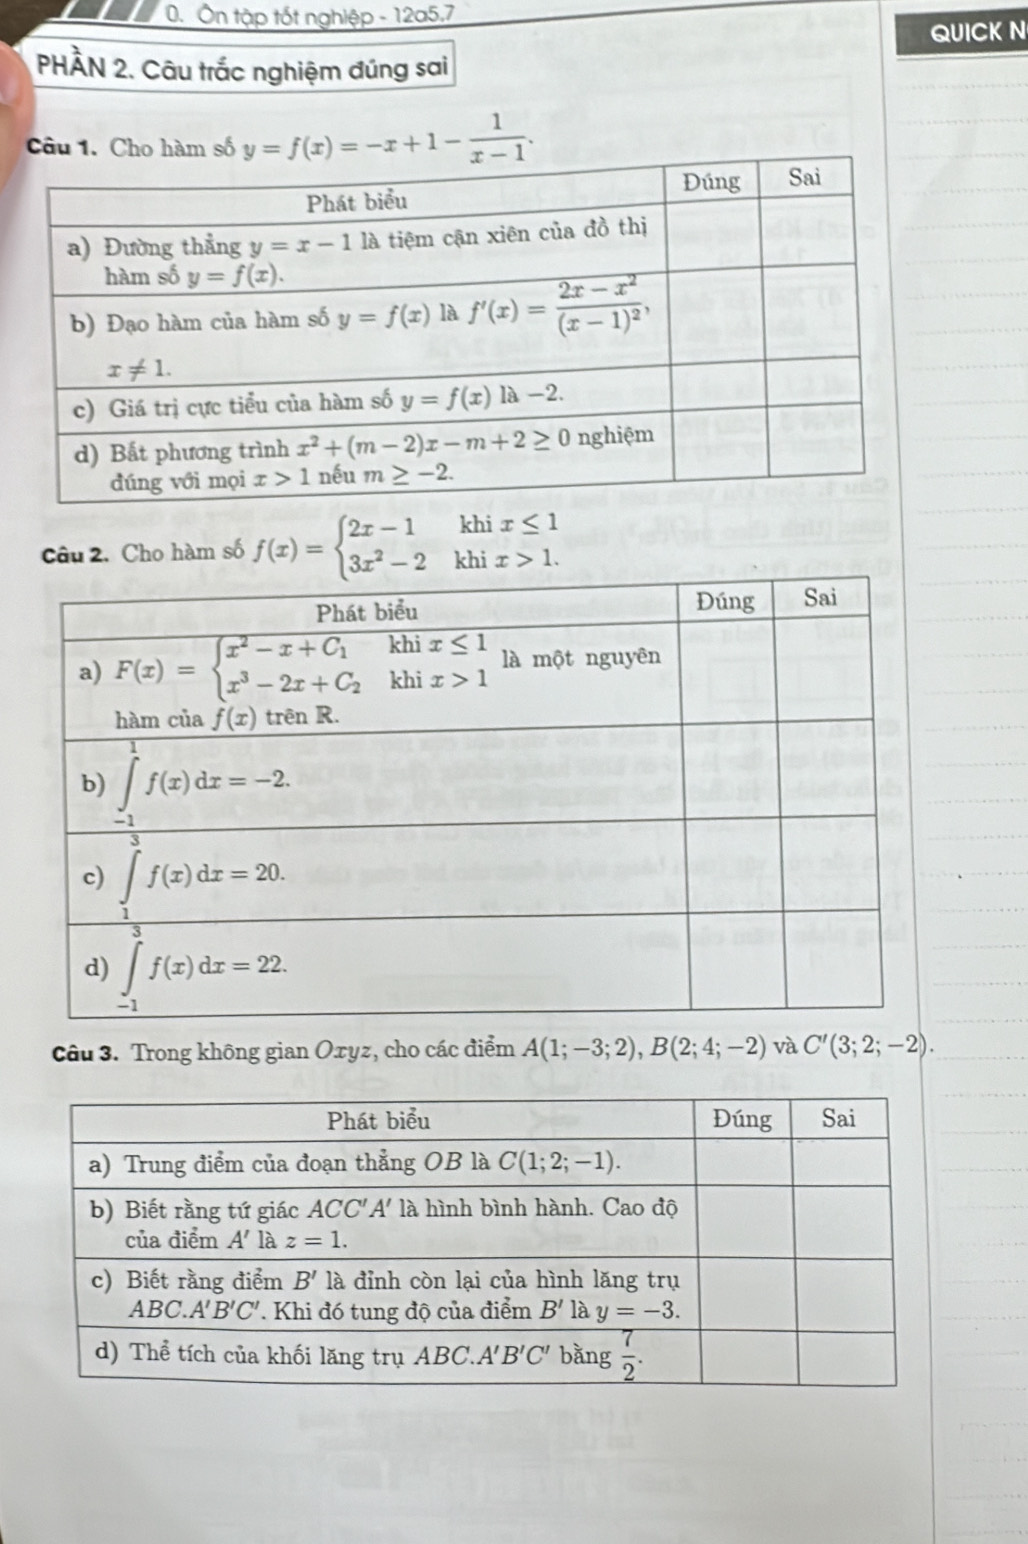 0. Ôn tập tốt nghiệp - 12a5.7
QUICK N
PHẦN 2. Câu trắc nghiệm đúng sai
Câu 1. Cho hàm số y = f(x) = −x + 1 − \frac{1}{x − 1}.
Phát biểu | Đúng | Sai
a) Đường thẳng y = x − 1 là tiệm cận xiên của đồ thị
hàm số y = f(x).
b) Đạo hàm của hàm số y = f(x) là f′(x) = \frac{2x − x²}{(x − 1)²},
x ≠ 1.
c) Giá trị cực tiểu của hàm số y = f(x) là −2.
d) Bất phương trình x² + (m − 2)x − m + 2 ≥ 0 nghiệm
đúng với mọi x > 1 nếu m ≥ −2.
Câu 2. Cho hàm số f(x) = { 2x − 1 khi x ≤ 1
3x² − 2 khi x > 1.
Phát biểu | Đúng | Sai
a) F(x) = { x² − x + C₁ khi x ≤ 1
x³ − 2x + C₂ khi x > 1 là một nguyên
hàm của f(x) trên ℝ.
b) ∫_{−1}^{1} f(x) dx = −2.
c) ∫_{1}^{3} f(x) dx = 20.
d) ∫_{−1}^{3} f(x) dx = 22.
Câu 3. Trong không gian Oxyz, cho các điểm A(1; −3; 2), B(2; 4; −2) và C′(3; 2; −2).
Phát biểu | Đúng | Sai
a) Trung điểm của đoạn thẳng OB là C(1; 2; −1).
b) Biết rằng tứ giác ACC′A′ là hình bình hành. Cao độ
của điểm A′ là z = 1.
c) Biết rằng điểm B′ là đỉnh còn lại của hình lăng trụ
ABC.A′B′C′. Khi đó tung độ của điểm B′ là y = −3.
d) Thể tích của khối lăng trụ ABC.A′B′C′ bằng \frac{7}{2}.